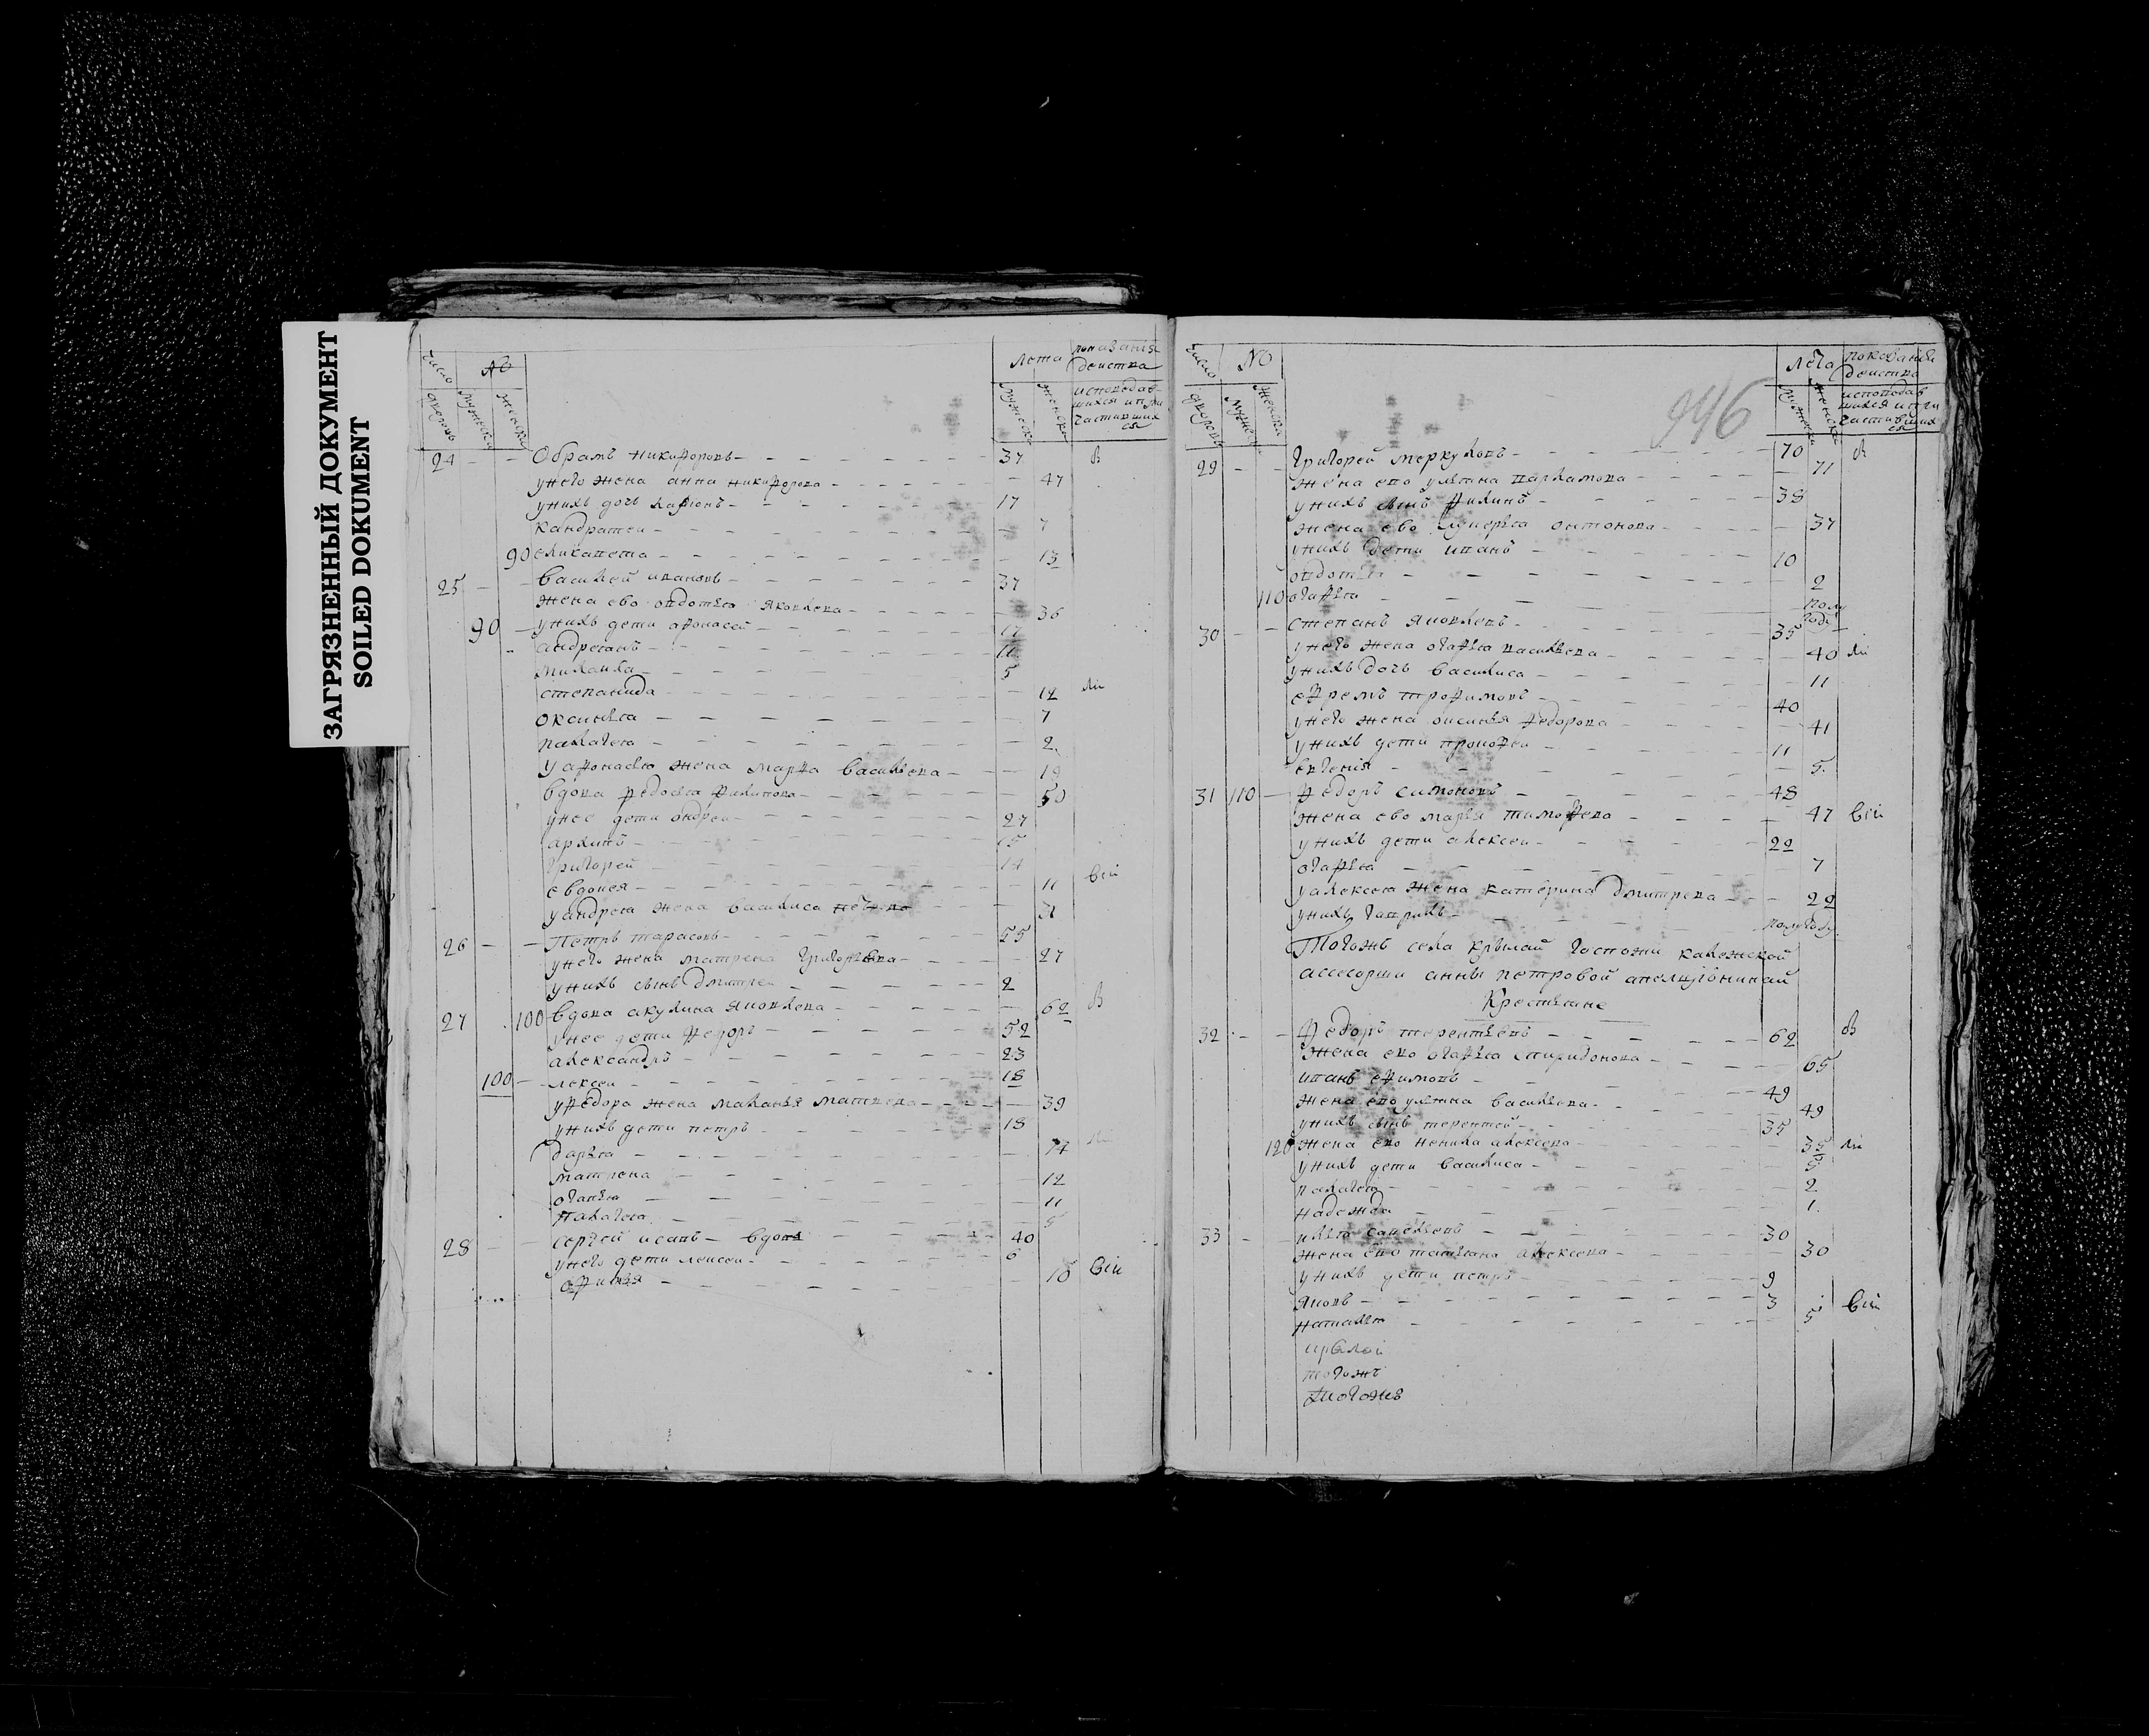 ЗАГРЯЗНЕННЫЙ ДОКУМЕНТ
SOILED DOKUMENT
число дворовъ № мужеска женска лета показанія действа
мужеска женска исповедав
шихся и при
частивших
ся
24 Обрамъ никифоровъ 37 в
у него жена анна никифорова 47
у нихъ 17
кандратеи 7
90 еликапета 13
25 василей ивановъ 37
жена ево овдотья яковлева 36
90 у нихъ дети афонасей 17
андреянъ 11
михаила 5
степанида 12
оксинья 7
палагея 2
у афонасья жена марфа васильева 19
вдова федосья филипова 50
у нее дети андреи 27
архипъ 15
григорей 14
евдокея 11
у андрея жена василиса 31
26 Петръ тарасовъ 25
у него жена матрена григорьева 27
у нихъ сынъ дмитреи 2
27 100 вдова акулина яковлева 62 в
у нее дети федоръ 52
александръ 23
100 лексеи 18
у федора жена маланья матвеева 39
у нихъ дети петръ 18
дарья 14
матрена 12
огапья 11
палагея 5
28 сергей исаевъ вдовъ 40
у него дети лексеи 6
офимья 10
число дворовъ № мужеска женска лета показанія действа
мужеска женска исповедав
шихся и при
частивших
ся
946
29 Григорей меркуловъ 70 в
жена ево ульяна варламова 71
у нихъ сынъ филипъ 38
жена ево лукерья онтонова 37
у нихъ дети иванъ 10
овдотья 2
110 огафья полу
года
30 степанъ яковлевъ 35
у него жена огафья васильева 40
у нихъ дочь василиса 11
ефремъ трофимовъ 40
у него жена оксинья федорова 41
у нихъ дети прокофеи 11
евгенія 5
31 110 федоръ симоновъ 48
жена ево марья тимофева 47
у нихъ дети алексеи 22
огафья 7
у алексея жена катерина дмитрева 22
у нихъ гаврилъ полугоду
Тогожъ села крылай госпожи калежской
асесорши анны петровой
Крестьяне
32 федоръ терентьевъ 62 в
жена ево огафья спиридонова 65
иванъ ефимовъ 49
жена ево ульяна васильева 49
у нихъ сынъ терентей 35
120 жена ево ненила алексева 35
у нихъ дети василиса 5
палагея 2
надежда 1
33 илья савельевъ 30
жена ево татьяна алексева 30
у нихъ дети петръ 9
яковъ 3
наталья 5
крылай
тогожъ